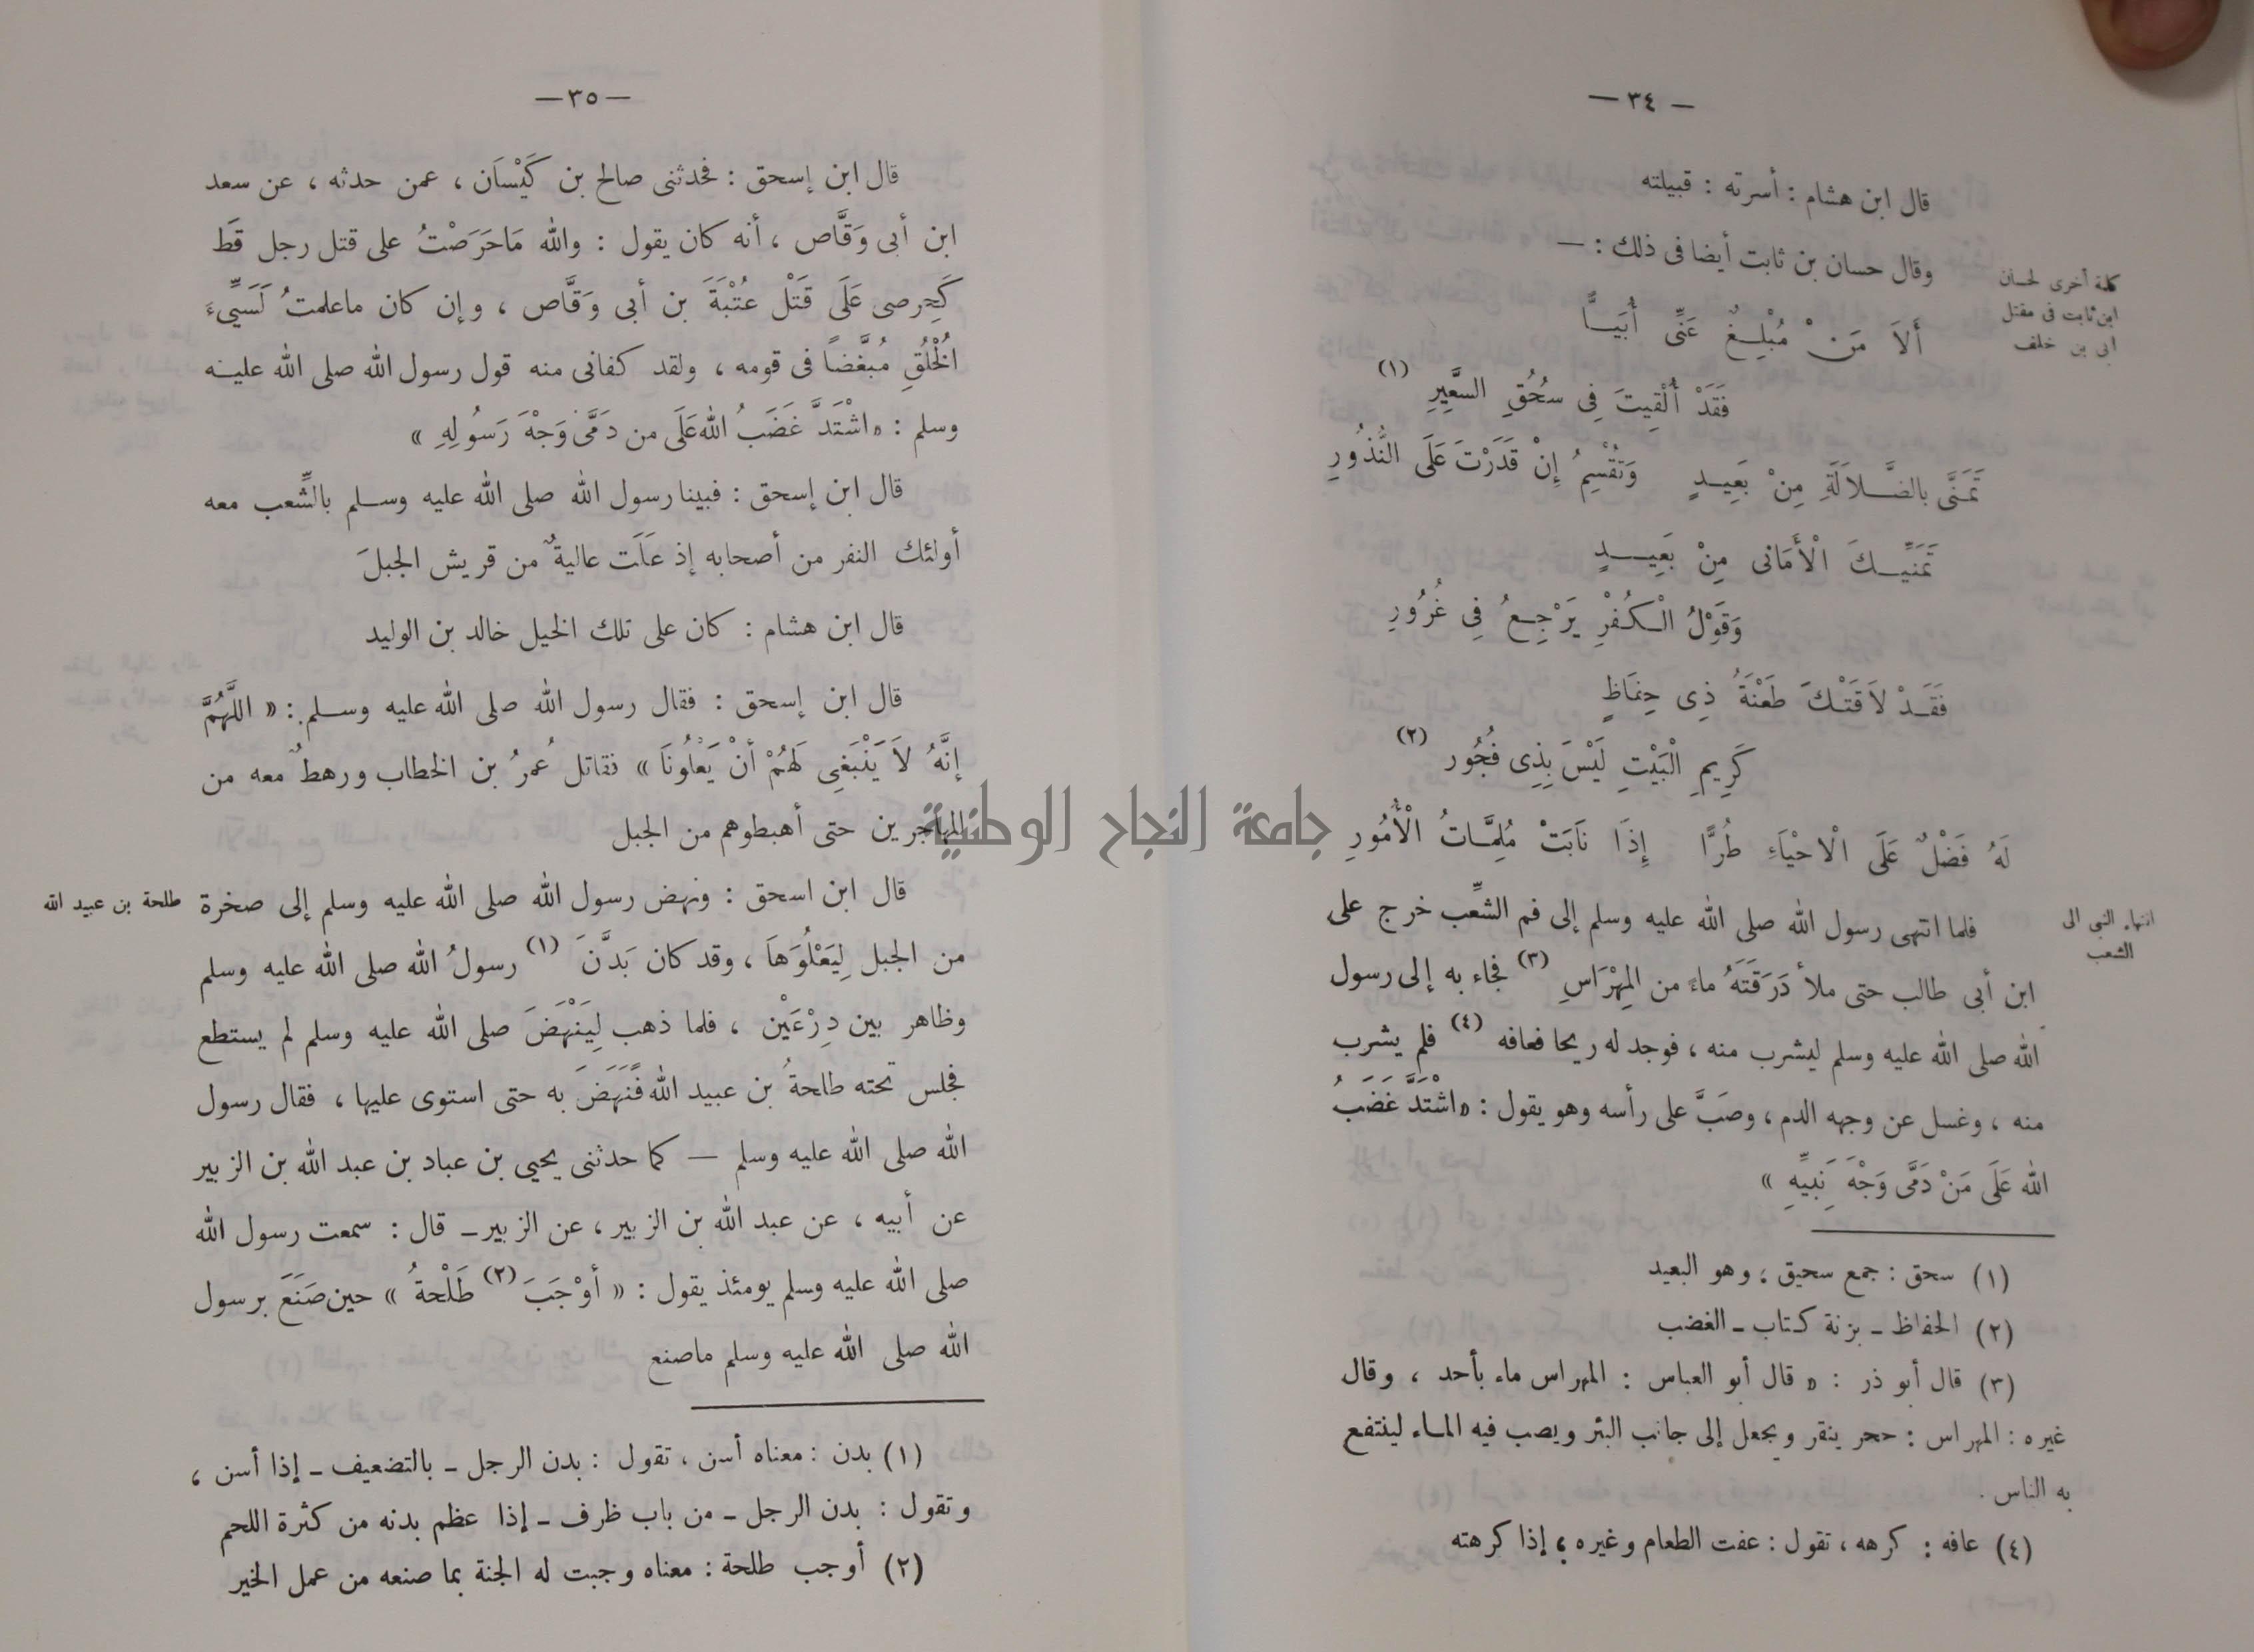 — ٣٤ —
قال ابن هشام : أسرته : قبيلته
وقال حسان بن ثابت أيضا فى ذلك : —
كلمة أخرى لحسان
ابن ثابت فى مقتل
ابى بن خلف
أَلاَ مَنْ مُبْلِغٌ عَنِّى أُبَيًّا
فَقَدْ أُلْقِيتَ فِى سُحُقِ السَّعِيرِ (١)
تَمَنَّى بالضَّلاَلَةِ مِنْ بَعِيدٍ وَتُقْسِمُ إِنْ قَدَرْتَ عَلَى النُّذُورِ
تَمَنِّيكَ الْأَمَانى مِنْ بَعِيدٍ
وَقَوْلُ الْكُفْرِ يَرْجِعُ فِى غُرُورِ
فَقَدْ لاَقَتْكَ طَعْنَةُ ذِى حِفَاظٍ
كَرِيمِ الْبَيْتِ لَيْسَ بِذِى فُجُور (٢)
لَهُ فَضْلٌ عَلَى الْاحْيَاءِ طُرًّا إِذَا نَابَتْ مُلِمَّاتُ الْأُمُورِ
انتهاء النبى الى
الشعب
فلما انتهى رسول الله صلى الله عليه وسلم إلى فم الشِّعب خرج على
ابن أبى طالب حتى ملأ دَرَقَتَهُ ماءً من المِهْرَاسِ (٣) فجاء به إلى رسول
الله صلى الله عليه وسلم ليشرب منه ، فوجد له ريحا فعافه (٤) فلم يشرب
منه ، وغسل عن وجهه الدم ، وصَبَّ على رأسه وهو يقول : « اشْتَدَّ غَضَبُ
الله عَلَى مَنْ دَمَّى وَجْهَ نَبِيِّهِ »
(١) سحق : جمع سحيق ، وهو البعيد
(٢) الحفاظ ـ بزنة كتاب ـ الغضب
(٣) قال أبو ذر : « قال أبو العباس : المهراس ماء بأحد ، وقال
غيره : المهراس : حجر ينقر ويجعل إلى جانب البئر ويصب فيه الماء لينتفع
به الناس .
(٤) عافه : كرهه ، تقول : عفت الطعام وغيره ، إذا كرهته
— ٣٥ —
قال ابن إسحق : فحدثنى صالح بن كَيْسَان ، عمن حدثه ، عن سعد
ابن أبى وَقَّاص ، أنه كان يقول : والله مَاحَرَصْتُ على قتل رجل قَط
كَحِرصى عَلَى قَتْل عُتْبَةَ بن أبى وَقَّاص ، وإن كان ماعلمتُ لَسَيِّىءَ
الْخُلُقِ مُبَغَّضاً فى قومه ، ولقد كفانى منه قول رسول الله صلى الله عليه
وسلم : « اشْتَدَّ غَضَبُ الله عَلَى من دَمَّى وَجْهَ رَسُولِهِ »
قال ابن إسحق : فبينا رسول الله صلى الله عليه وسلم بالشِّعب معه
أولئك النفر من أصحابه إذ عَلَت عاليةٌ من قريش الجبلَ
قال ابن هشام : كان على تلك الخيل خالد بن الوليد
قال ابن إسحق : فقال رسول الله صلى الله عليه وسلم : « اللَّهُمَّ
إنَّهُ لاَ يَنْبَغِى لَهُمْ أنْ يَعْلُونَا » فقاتل عُمرُ بن الخطاب ورهطٌ معه من
المهاجرين حتى أهبطوهم من الجبل
طلحة بن عبيد الله
قال ابن اسحق : ونهض رسول الله صلى الله عليه وسلم إلى صخرة
من الجبل لِيَعْلُوَهَا ، وقد كان بَدَّنَ (١) رسولُ الله صلى الله عليه وسلم
وظاهر بين دِرْعَيْن ، فلما ذهب لِيَنْهَضَ صلى الله عليه وسلم لم يستطع
فجلس تحته طلحةُ بن عبيد الله فَنَهَضَ به حتى استوى عليها ، فقال رسول
الله صلى الله عليه وسلم — كما حدثنى يحيى بن عباد بن عبد الله بن الزبير
عن أبيه ، عن عبد الله بن الزبير ، عن الزبير ـ قال : سمعت رسول الله
صلى الله عليه وسلم يومئذ يقول : « أوْجَبَ (٢) طَلْحةُ » حين صَنَعَ برسول
الله صلى الله عليه وسلم ماصنع
(١) بدن : معناه أسن ، تقول : بدن الرجل ـ بالتضعيف ـ إذا أسن ،
وتقول : بدن الرجل ـ من باب ظرف ـ إذا عظم بدنه من كثرة اللحم
(٢) أوجب طلحة : معناه وجبت له الجنة بما صنعه من عمل الخير
جامعة النجاح الوطنية